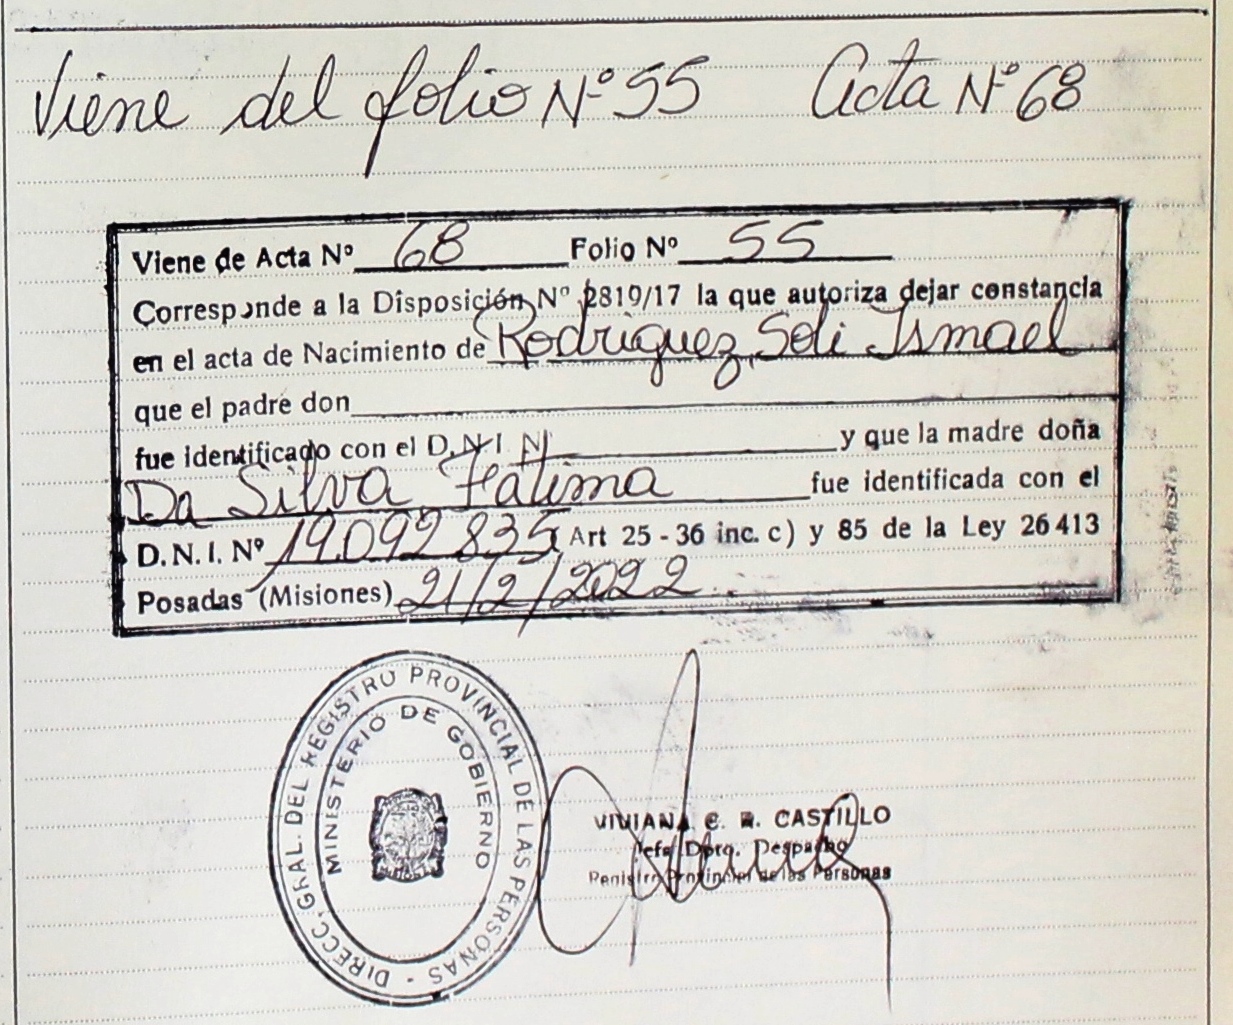 Viene del folio Nº 55 Acta Nº 68
Viene de Acta Nº 68 Folio Nº 55
Corresponde a la Disposición Nº 2819/17 la que autoriza dejar constancia
en el acta de Nacimiento de Rodriguez, Soli Ismael
que el padre don
fue identificado con el D.N.I. N y que la madre doña
Da Silva Fátima fue identificada con el
D.N.I. Nº 19.092.835 Art 25 - 36 inc. c) y 85 de la Ley 26413
Posadas (Misiones) 21/2/2022
DIRECC. GRAL. DEL REGISTRO PROVINCIAL DE LAS PERSONAS -
MINISTERIO DE GOBIERNO
VIVIANA C. R. CASTILLO
Jefa Dpto. Despacho
Registro Provincial de las Personas